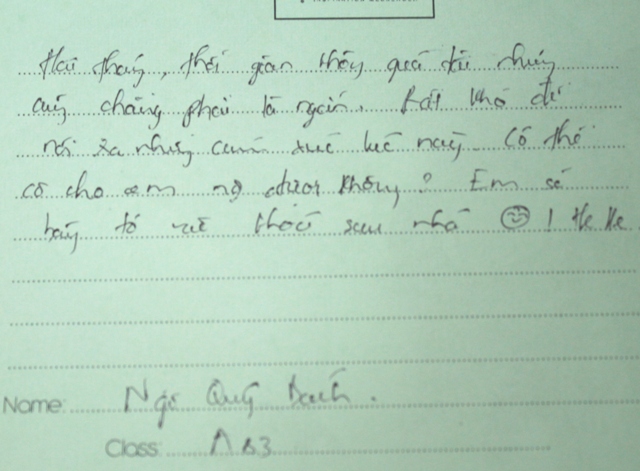 Hai tháng, thời gian không quá dài nhưng
cũng chẳng phải là ngắn. Rất khó để
nói ra những cảm xúc lúc này. Có thể
cô cho em nợ được không? Em sẽ
bày tỏ vào sau nhá 😊! He He
Name: Ngô Quý Danh.
Class: A B3